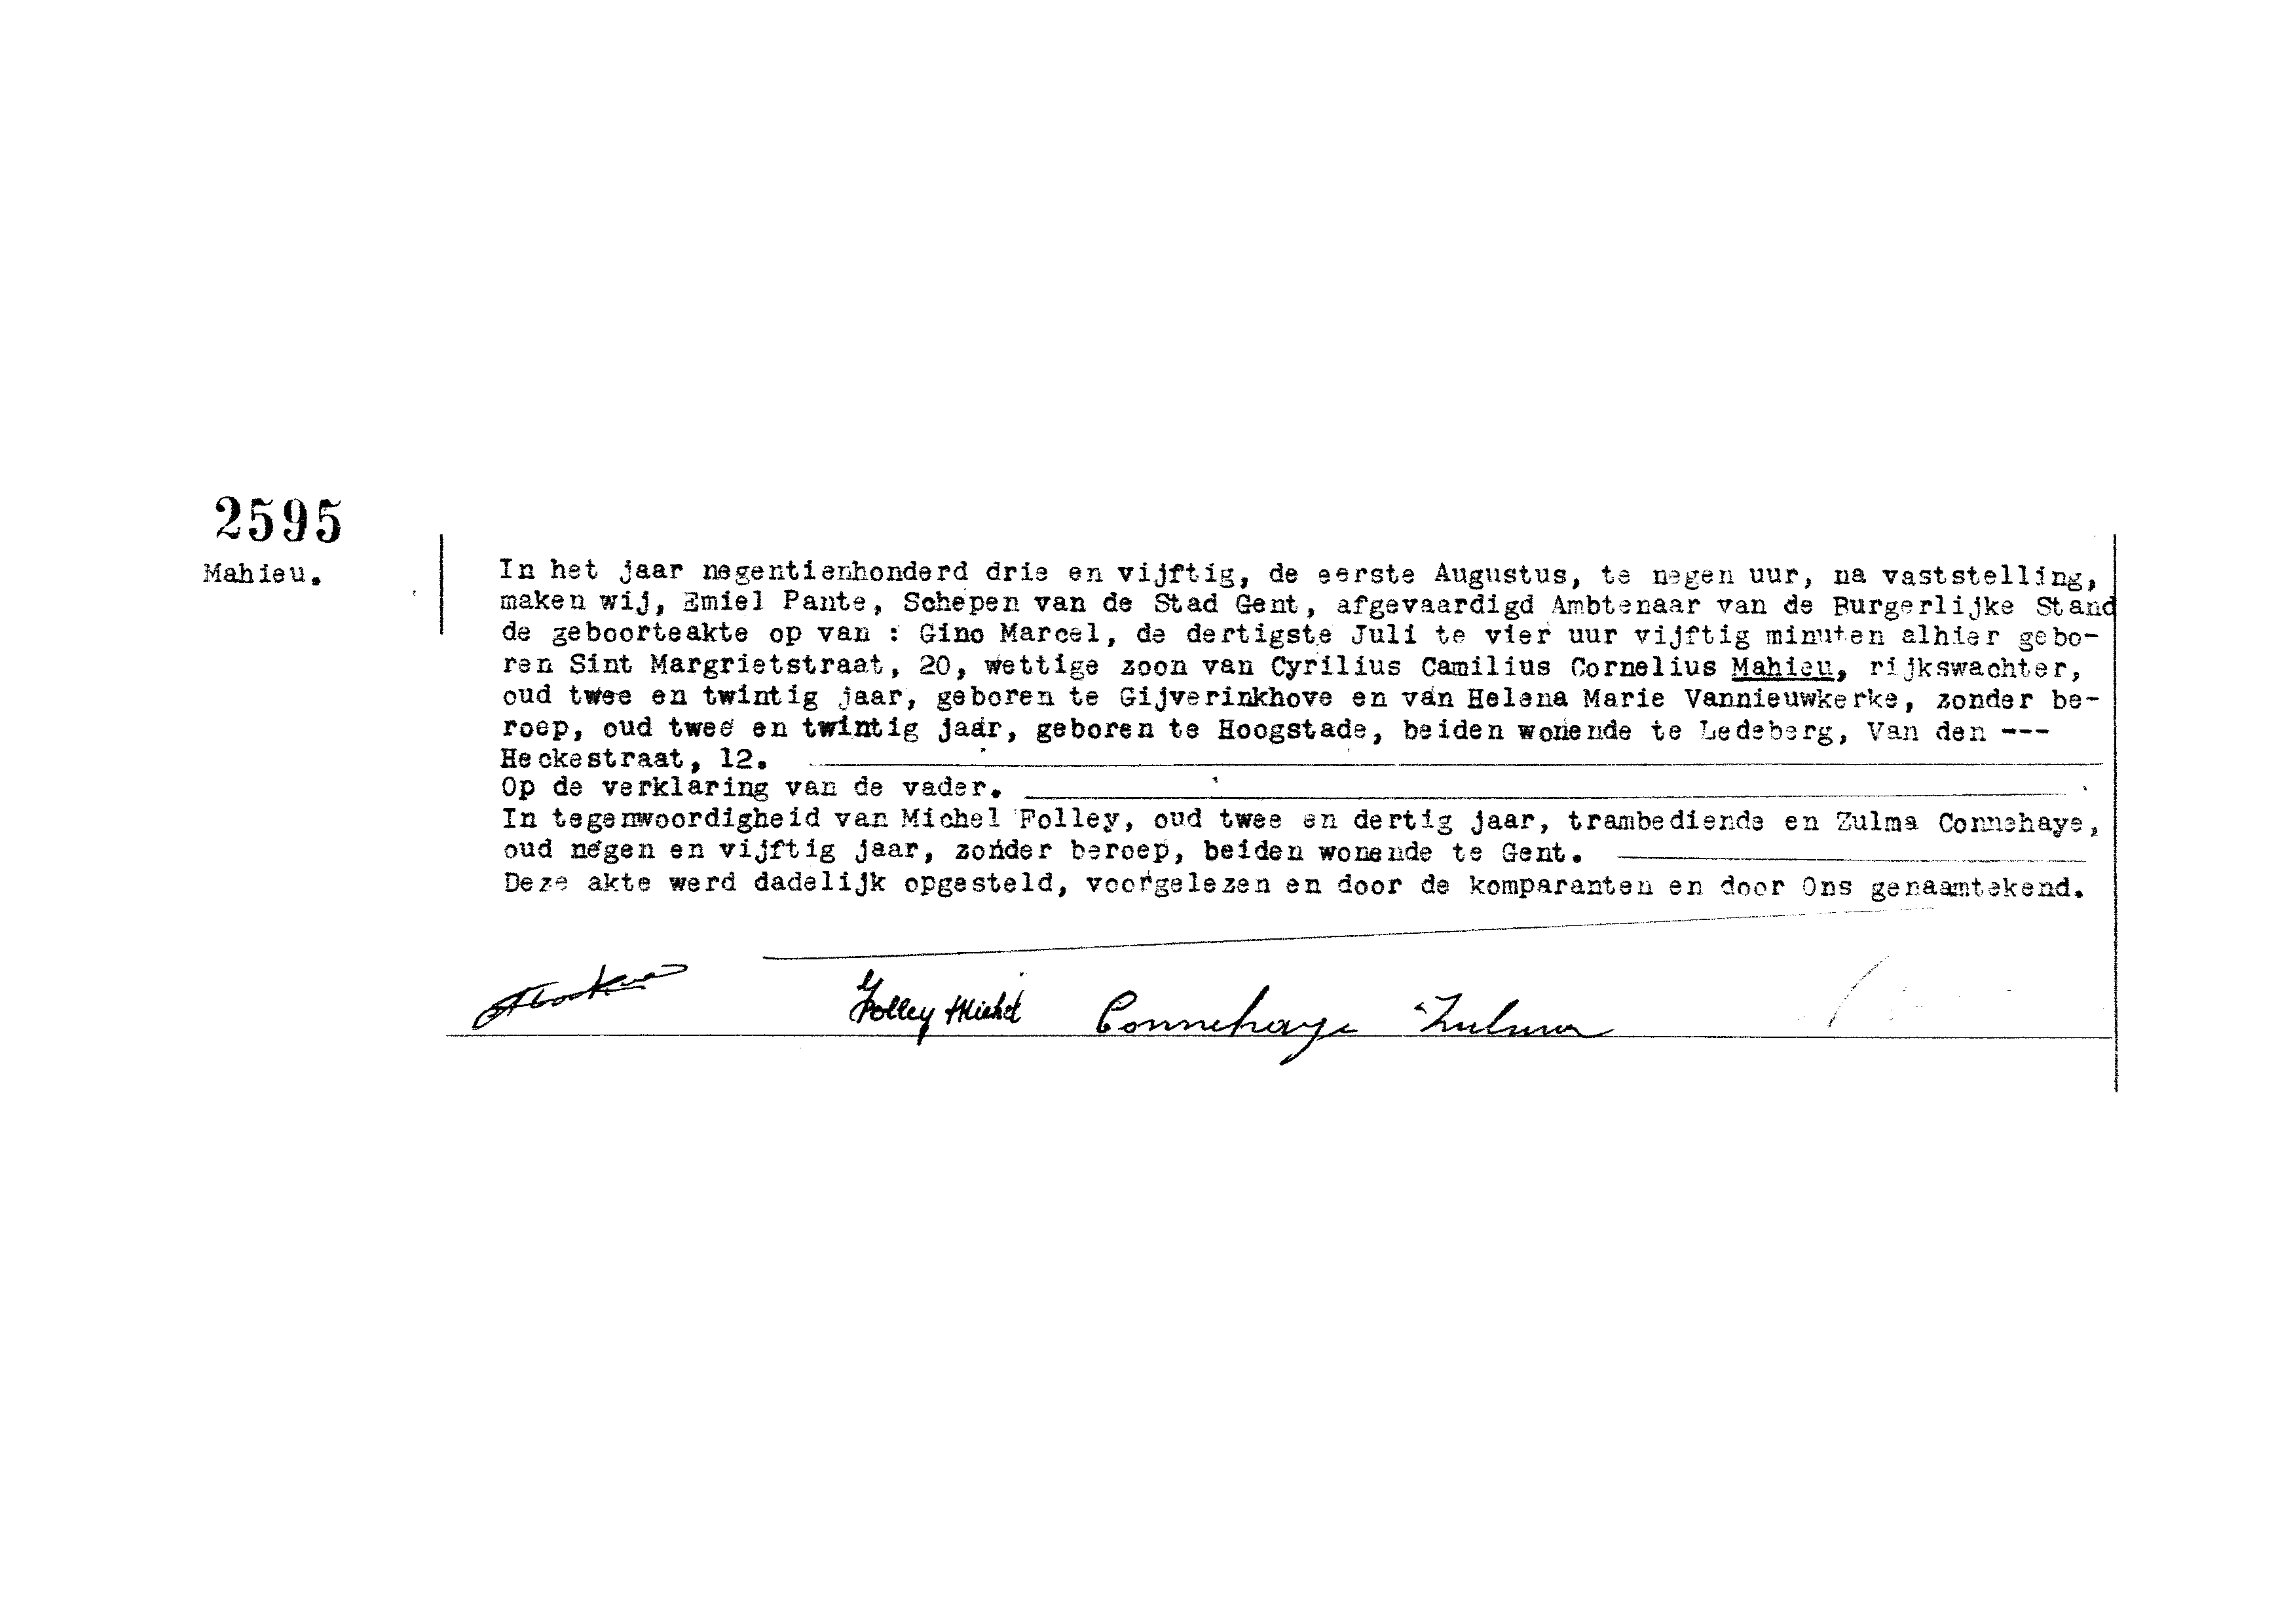 2595
Mahieu.
In het jaar negentienhonderd drie en vijftig, de eerste Augustus, te negen uur, na vaststelling,
maken wij, Emiel Pante, Schepen van de Stad Gent, afgevaardigd Ambtenaar van de Burgerlijke Stand
de geboorteakte op van : Gino Marcel, de dertigste Juli te vier uur vijftig minuten alhier gebo-
ren Sint Margrietstraat, 20, wettige zoon van Cyrilius Camilius Cornelius Mahieu, rijkswachter,
oud twee en twintig jaar, geboren te Gijverinkhove en van Helena Marie Vannieuwkerke, zonder be-
roep, oud twee en twintig jaar, geboren te Hoogstade, beiden wonende te Ledeberg, Van den ---
Heckestraat, 12.
Op de verklaring van de vader.
In tegenwoordigheid van Michel Folley, oud twee en dertig jaar, trambediende en Zulma Connehaye,
oud negen en vijftig jaar, zonder beroep, beiden wonende te Gent.
Deze akte werd dadelijk opgesteld, voorgelezen en door de komparanten en door Ons genaamtekend.
Folley Michel Connehaye Zulma